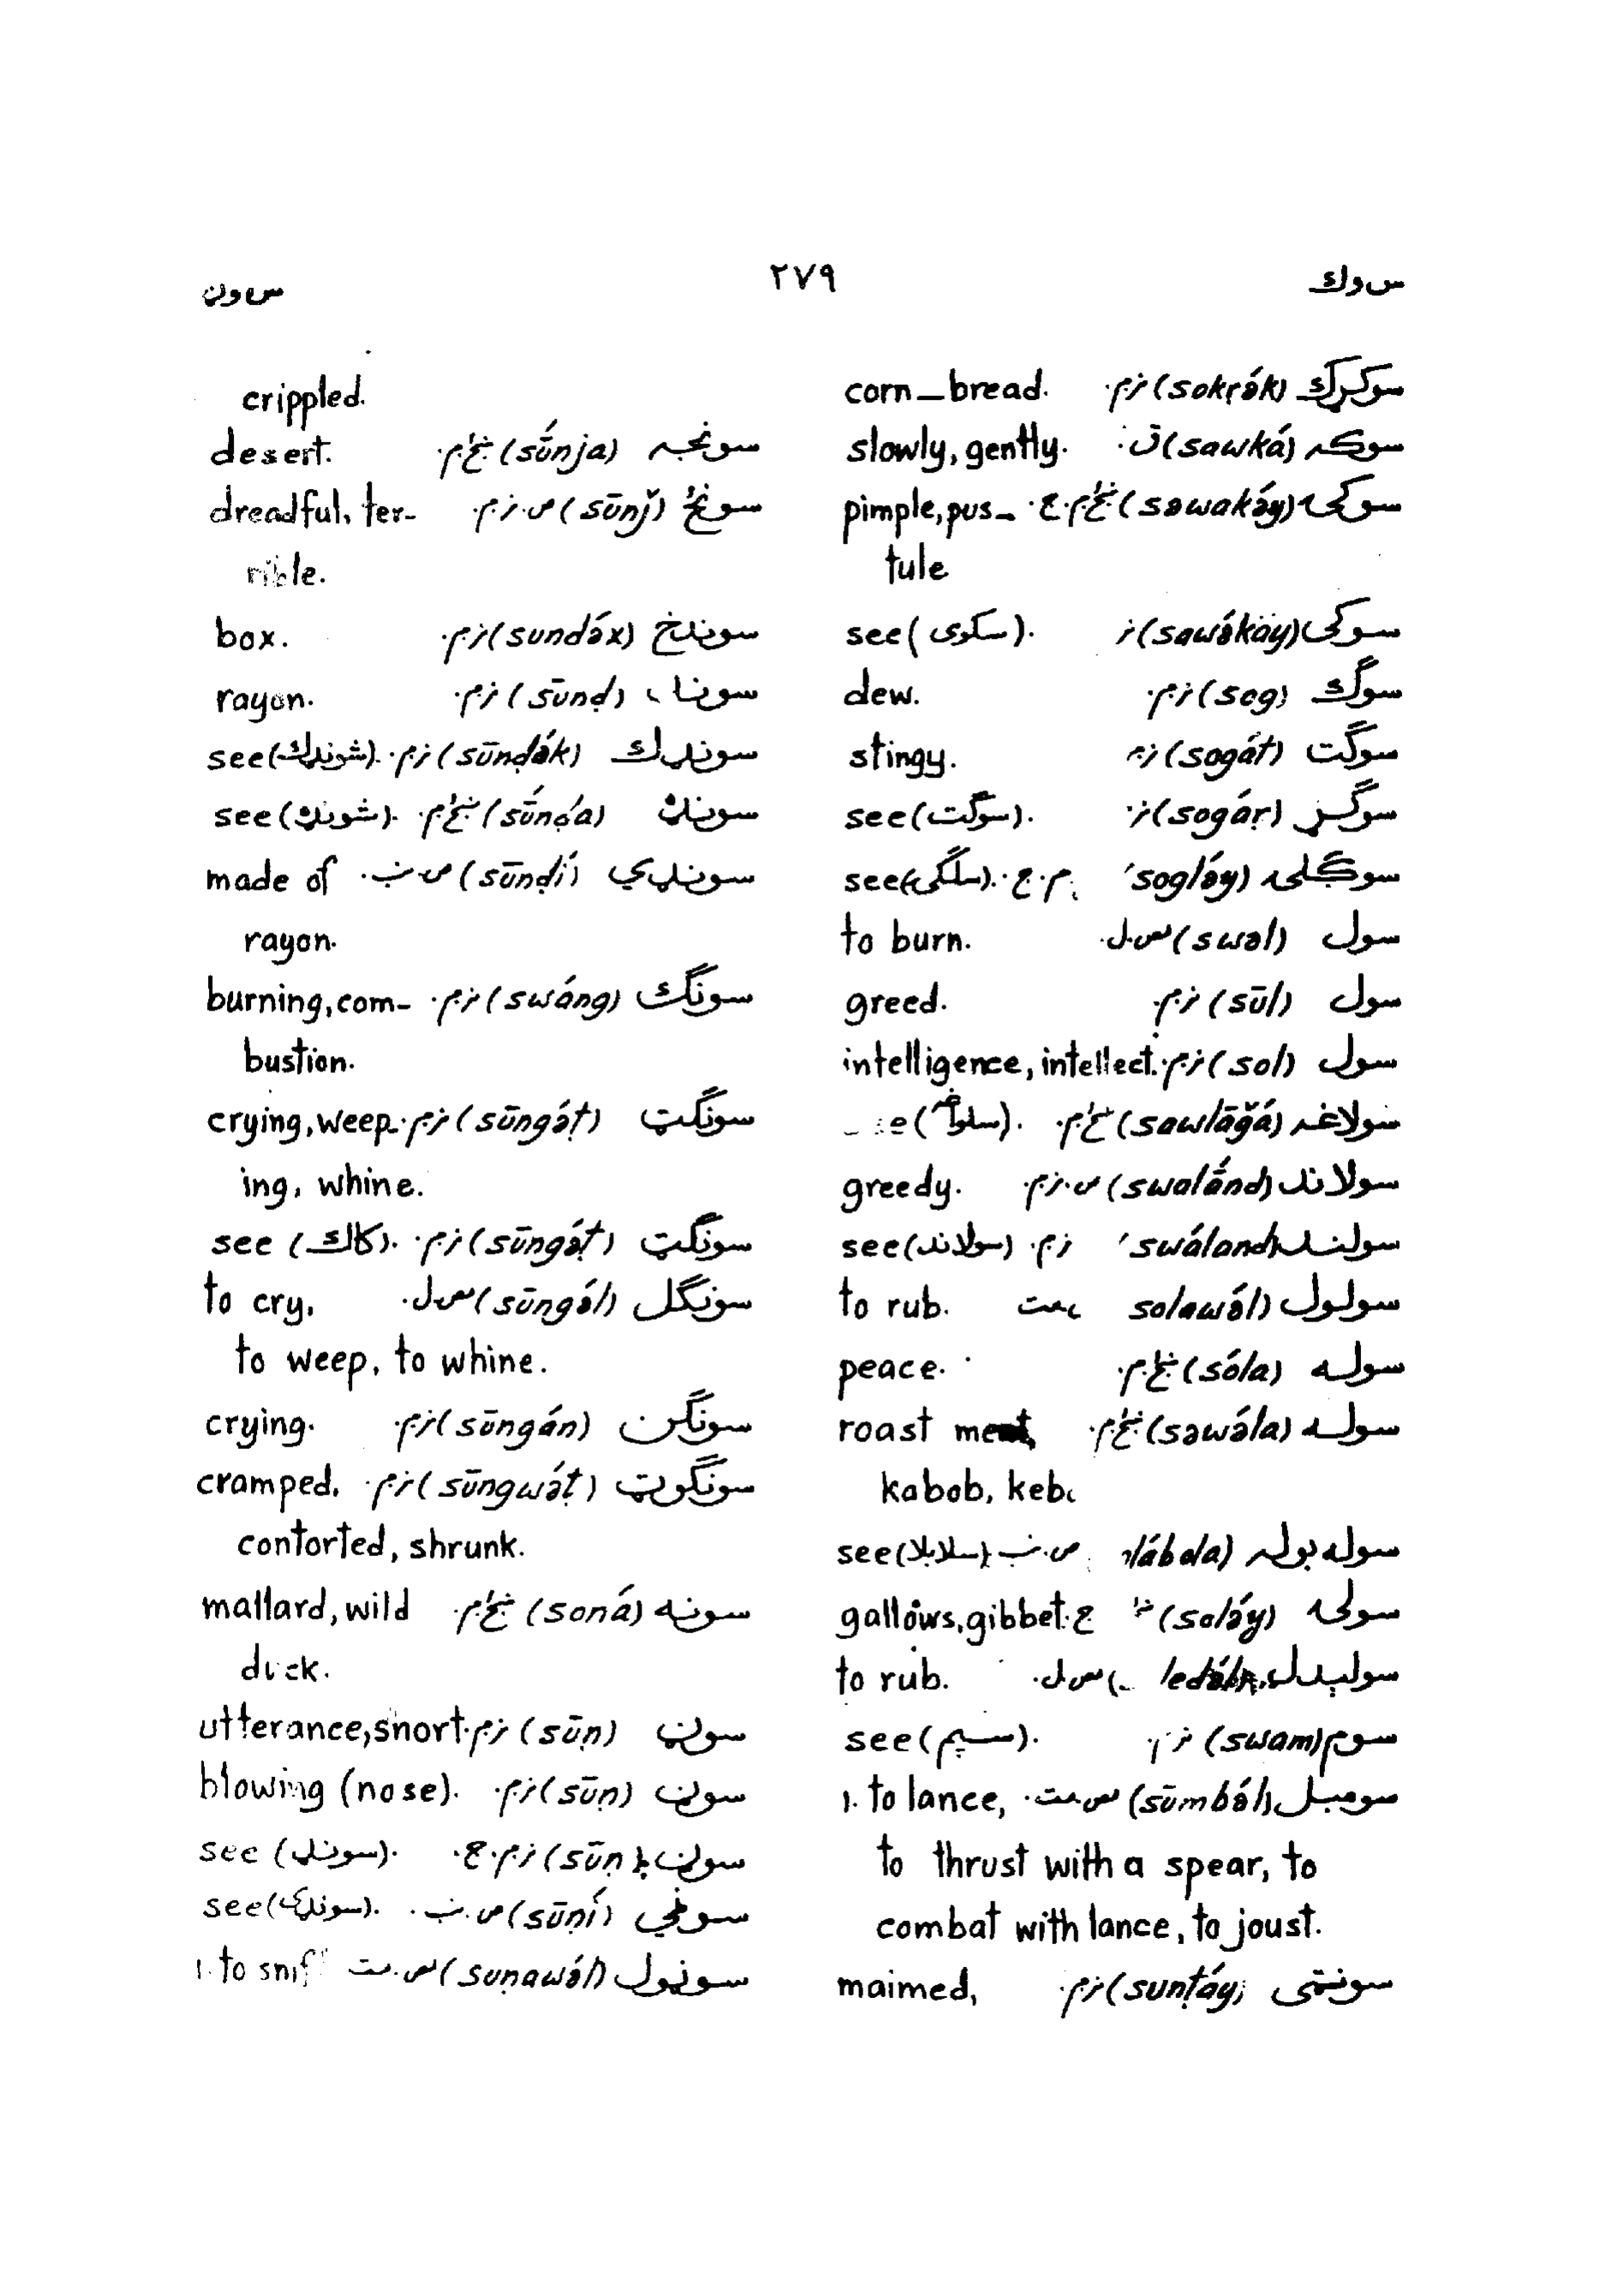 سوك ٢٧٩ سون
سوکړك (sokṛә́k) ن.م. corn_bread.
سوکه (sawká) ق. slowly, gently.
سوکۍ (sawakә́y) ښځ.م.ج. pimple, pus_
tule
سوکی (sawә́kay) ن see (سکوی).
سوگ (sog) ن.م. dew.
سوگت (sogát) ن.م stingy.
سوگړ (sogáṛ) ن. see (سوگت).
سوگلۍ soglә́y) م.ج. see (سلگۍ).
سول (swәl) مص.ل. to burn.
سول (sūl) ن.م. greed.
سول (sol) ن.م. intelligence, intellect.
سولاغه (sawlāğá) ښځ.م.
سولاند (swalā́nd) ص.ن.م. greedy.
سولند swáland) ن.م. see (سولاند)
سولول solawә́l) to rub.
سوله (sóla) ښځ.م. peace.
سوله (sәwә́la) ښځ.م. roast meat,
kabob,
سوله بوله ص.ن see (سلابلا)
سولۍ (solә́y) ج gallows, gibbet.
سولېدل مص.ل. to rub.
سوم (swam) ن.م see (سپم).
سومبل (sūmbә́l) مص.مت. 1. to lance,
to thrust with a spear, to
combat with lance, to joust.
سونټی (sunṭáy) ن.م. maimed,
crippled.
سونجه (sū́nja) ښځ.م. desert.
سونځ (sūnǰ) ص.ن.م. dreadful, ter_
rible.
سوندخ (sundә́x) ن.م. box.
سونډ (sūnḍ) ن.م. rayon.
سونډك (sūnḍә́k) ن.م. see (شونډك).
سونډه (sū́nḍa) ښځ.م. see (شونډه).
سونډي (sūnḍí) ص.ن. made of
rayon.
سونگ (swáng) ن.م. burning, com_
bustion.
سونگټ (sūngә́ṭ) ن.م. crying, weep_
ing, whine.
سونگټ (sūngә́ṭ) ن.م. see (كاك).
سونگل (sūngә́l) مص.ل. to cry,
to weep, to whine.
سونگن (sūngán) ن.م. crying.
سونگوټ (sūngwә́ṭ) ن.م. cramped,
contorted, shrunk.
سونه (soná) ښځ.م. mallard, wild
duck.
سوڼ (sūṇ) ن.م. utterance, snort.
سوڼ (sūṇ) ن.م. blowing (nose).
سوڼ (sūṇ) ن.م.ج. see (سونډ).
سوڼي (sūṇí) ص.ن. see (سونډي).
سوڼول (suṇawә́l) مص.مت 1. to sniff